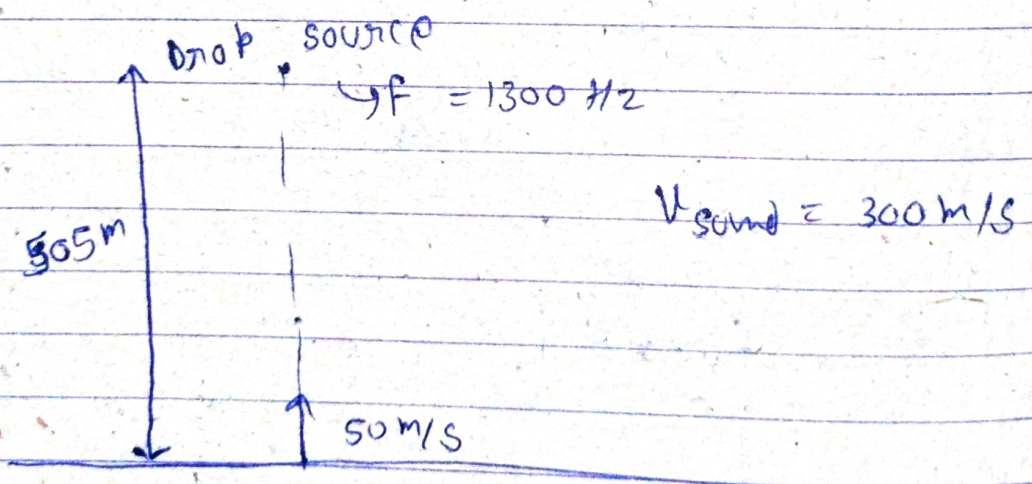 Drop source
↳ f = 1300 Hz
V sound = 300 m/s
505m
50 m/s